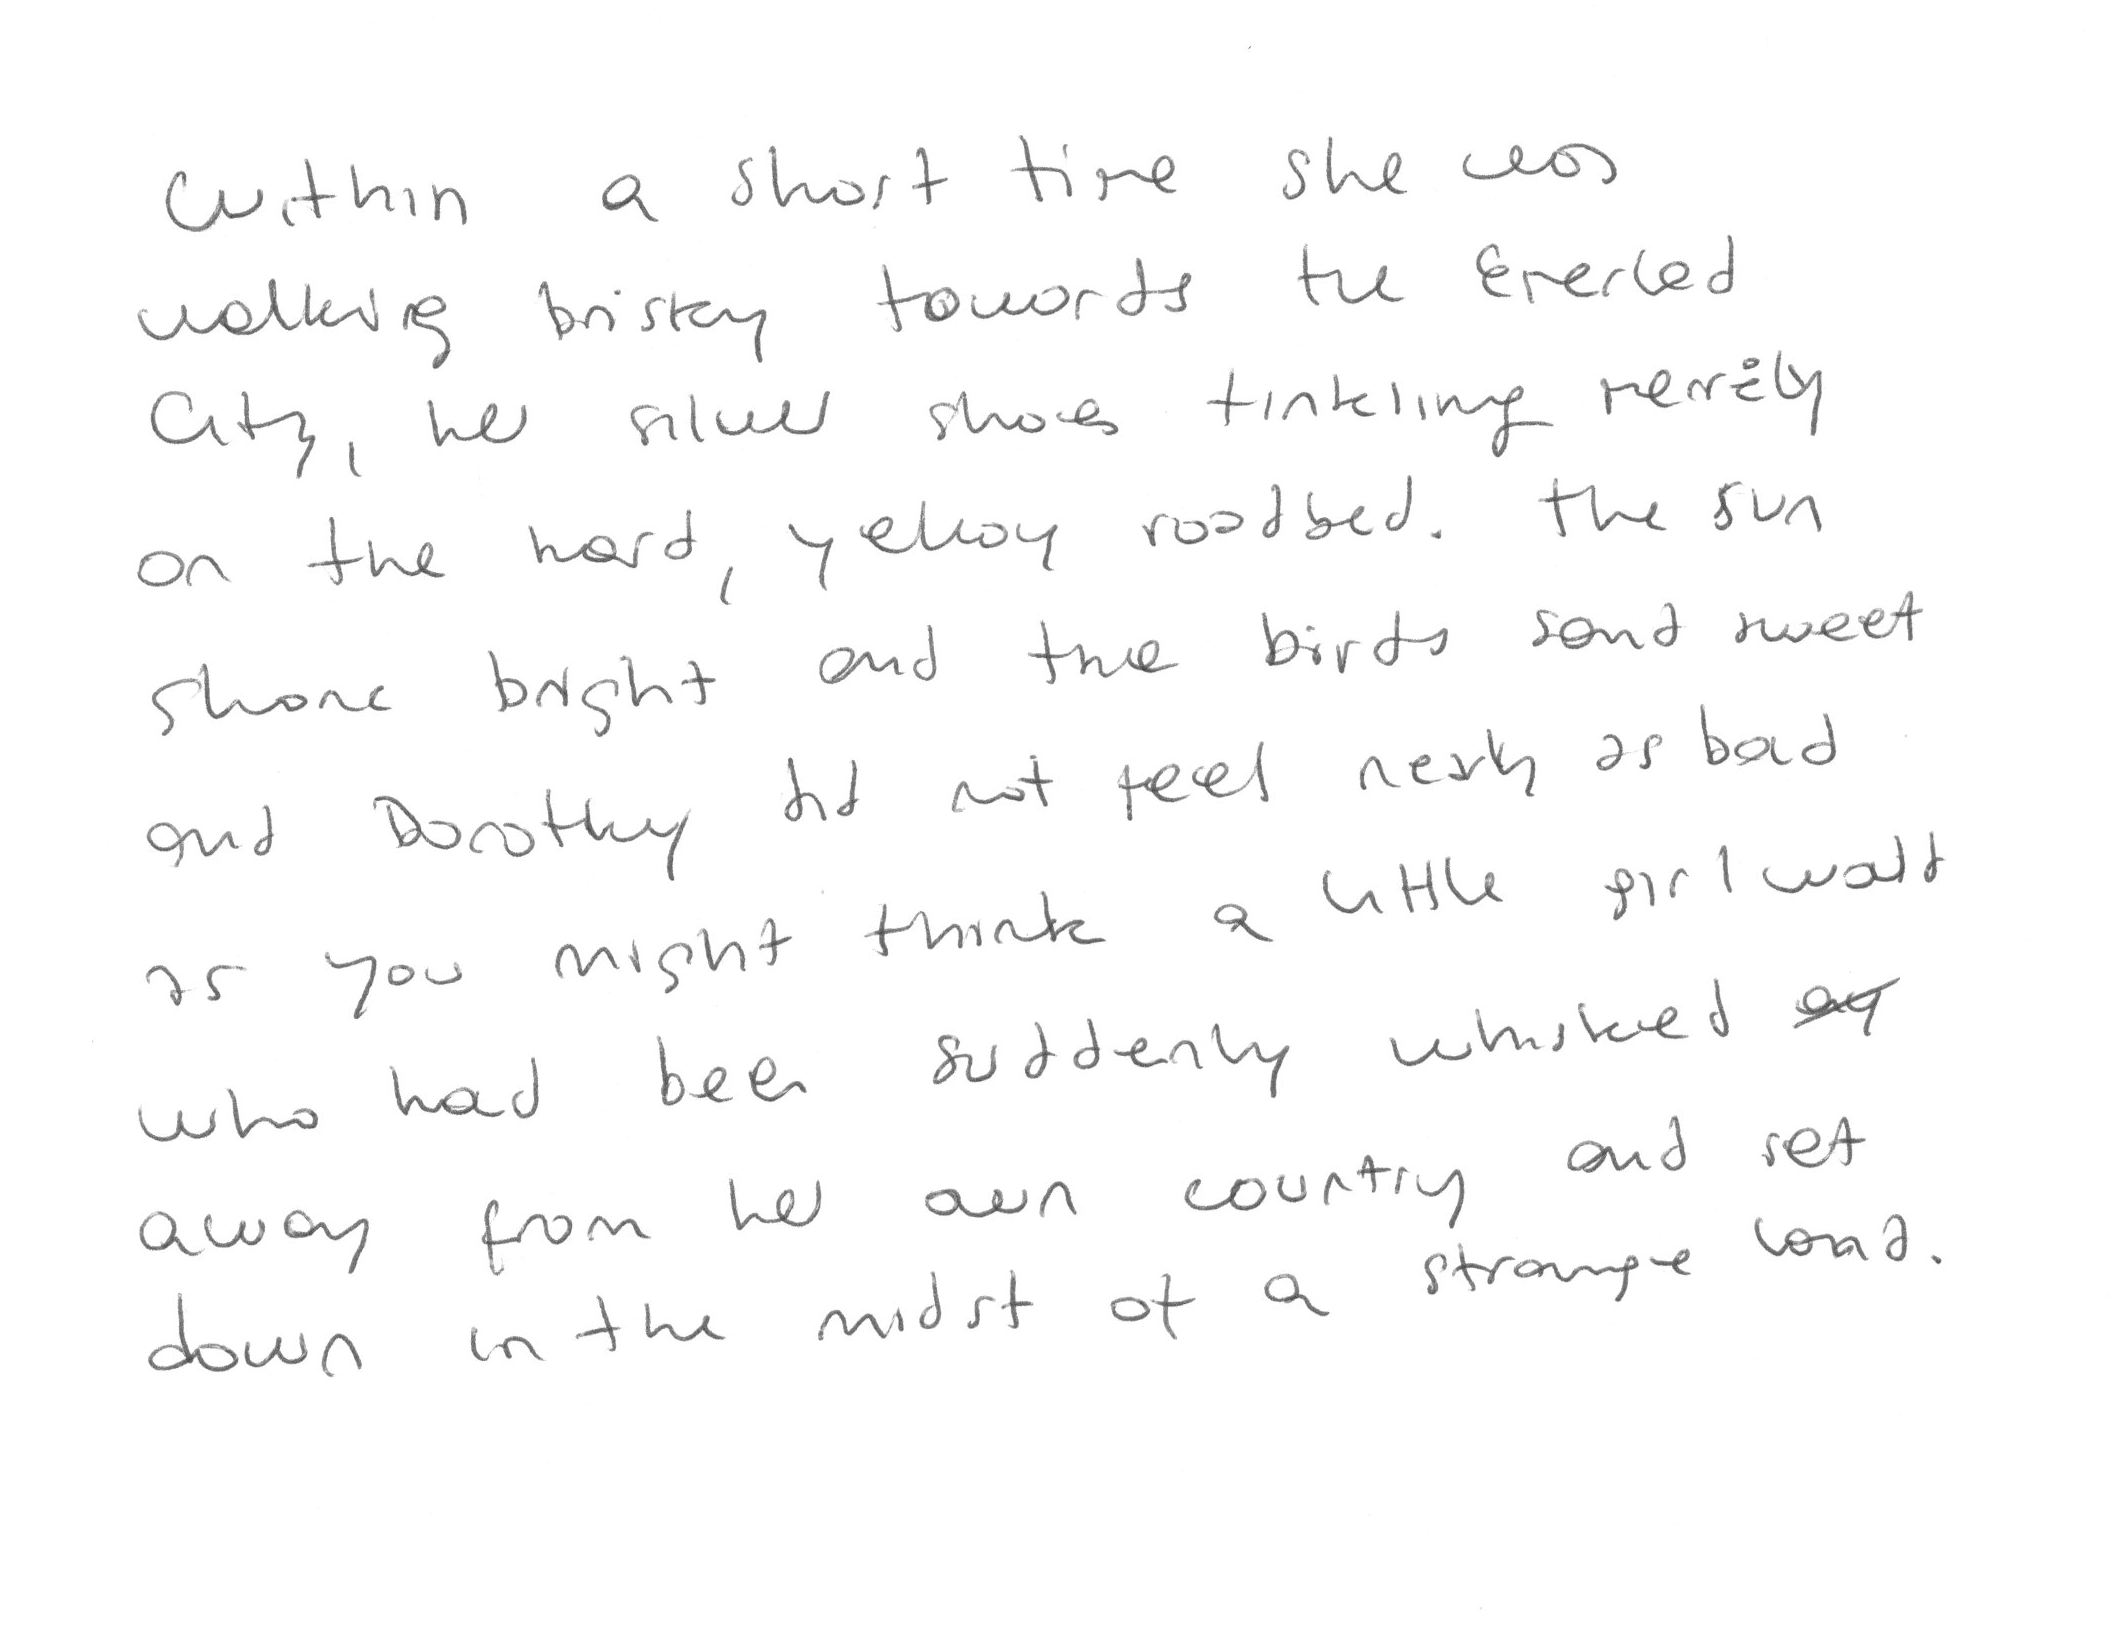 Within a short time she was
walking briskly towards the Emerled
City, her silver shoes tinkling merrily
on the hard, yelloy roadbed. The sun
shone bright and the birds sand sweet
and Dorothy did not feel nearly as bad
as you might think a little girl would
who had been suddenly whisked ay
away from her own country and set
down in the midst of a strange land.